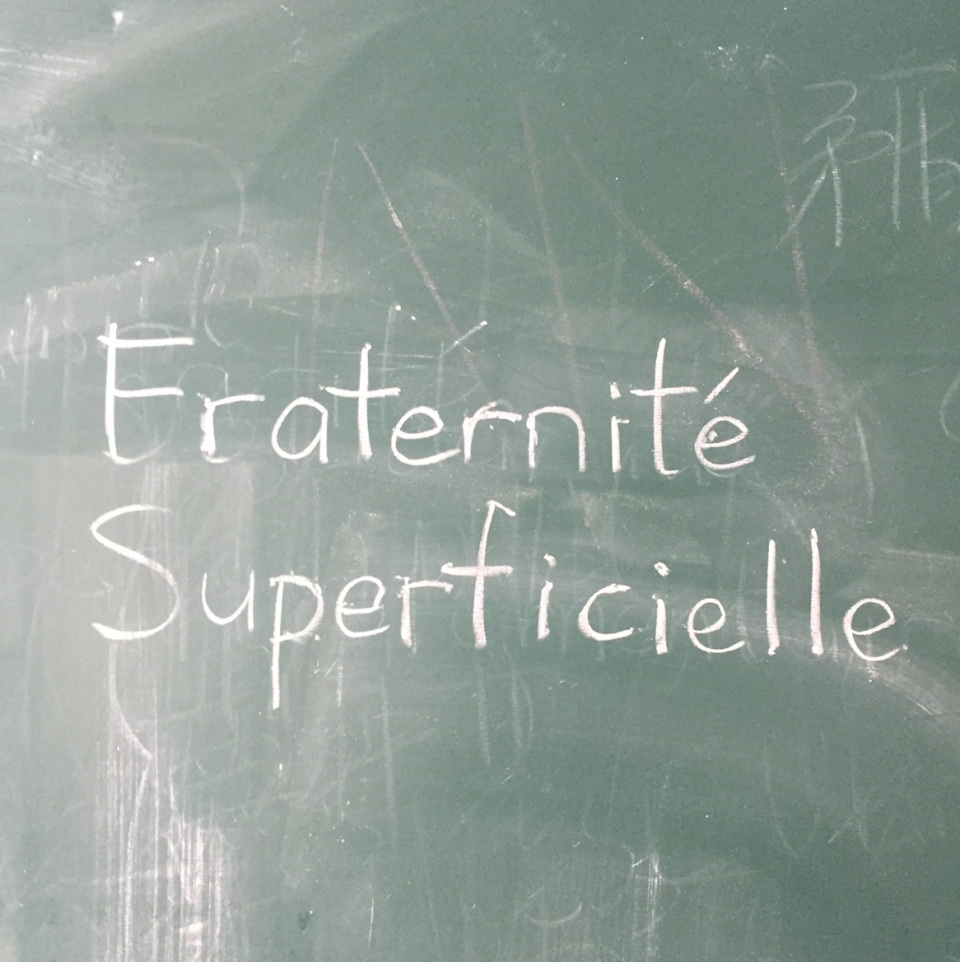 Fraternité
Superficielle